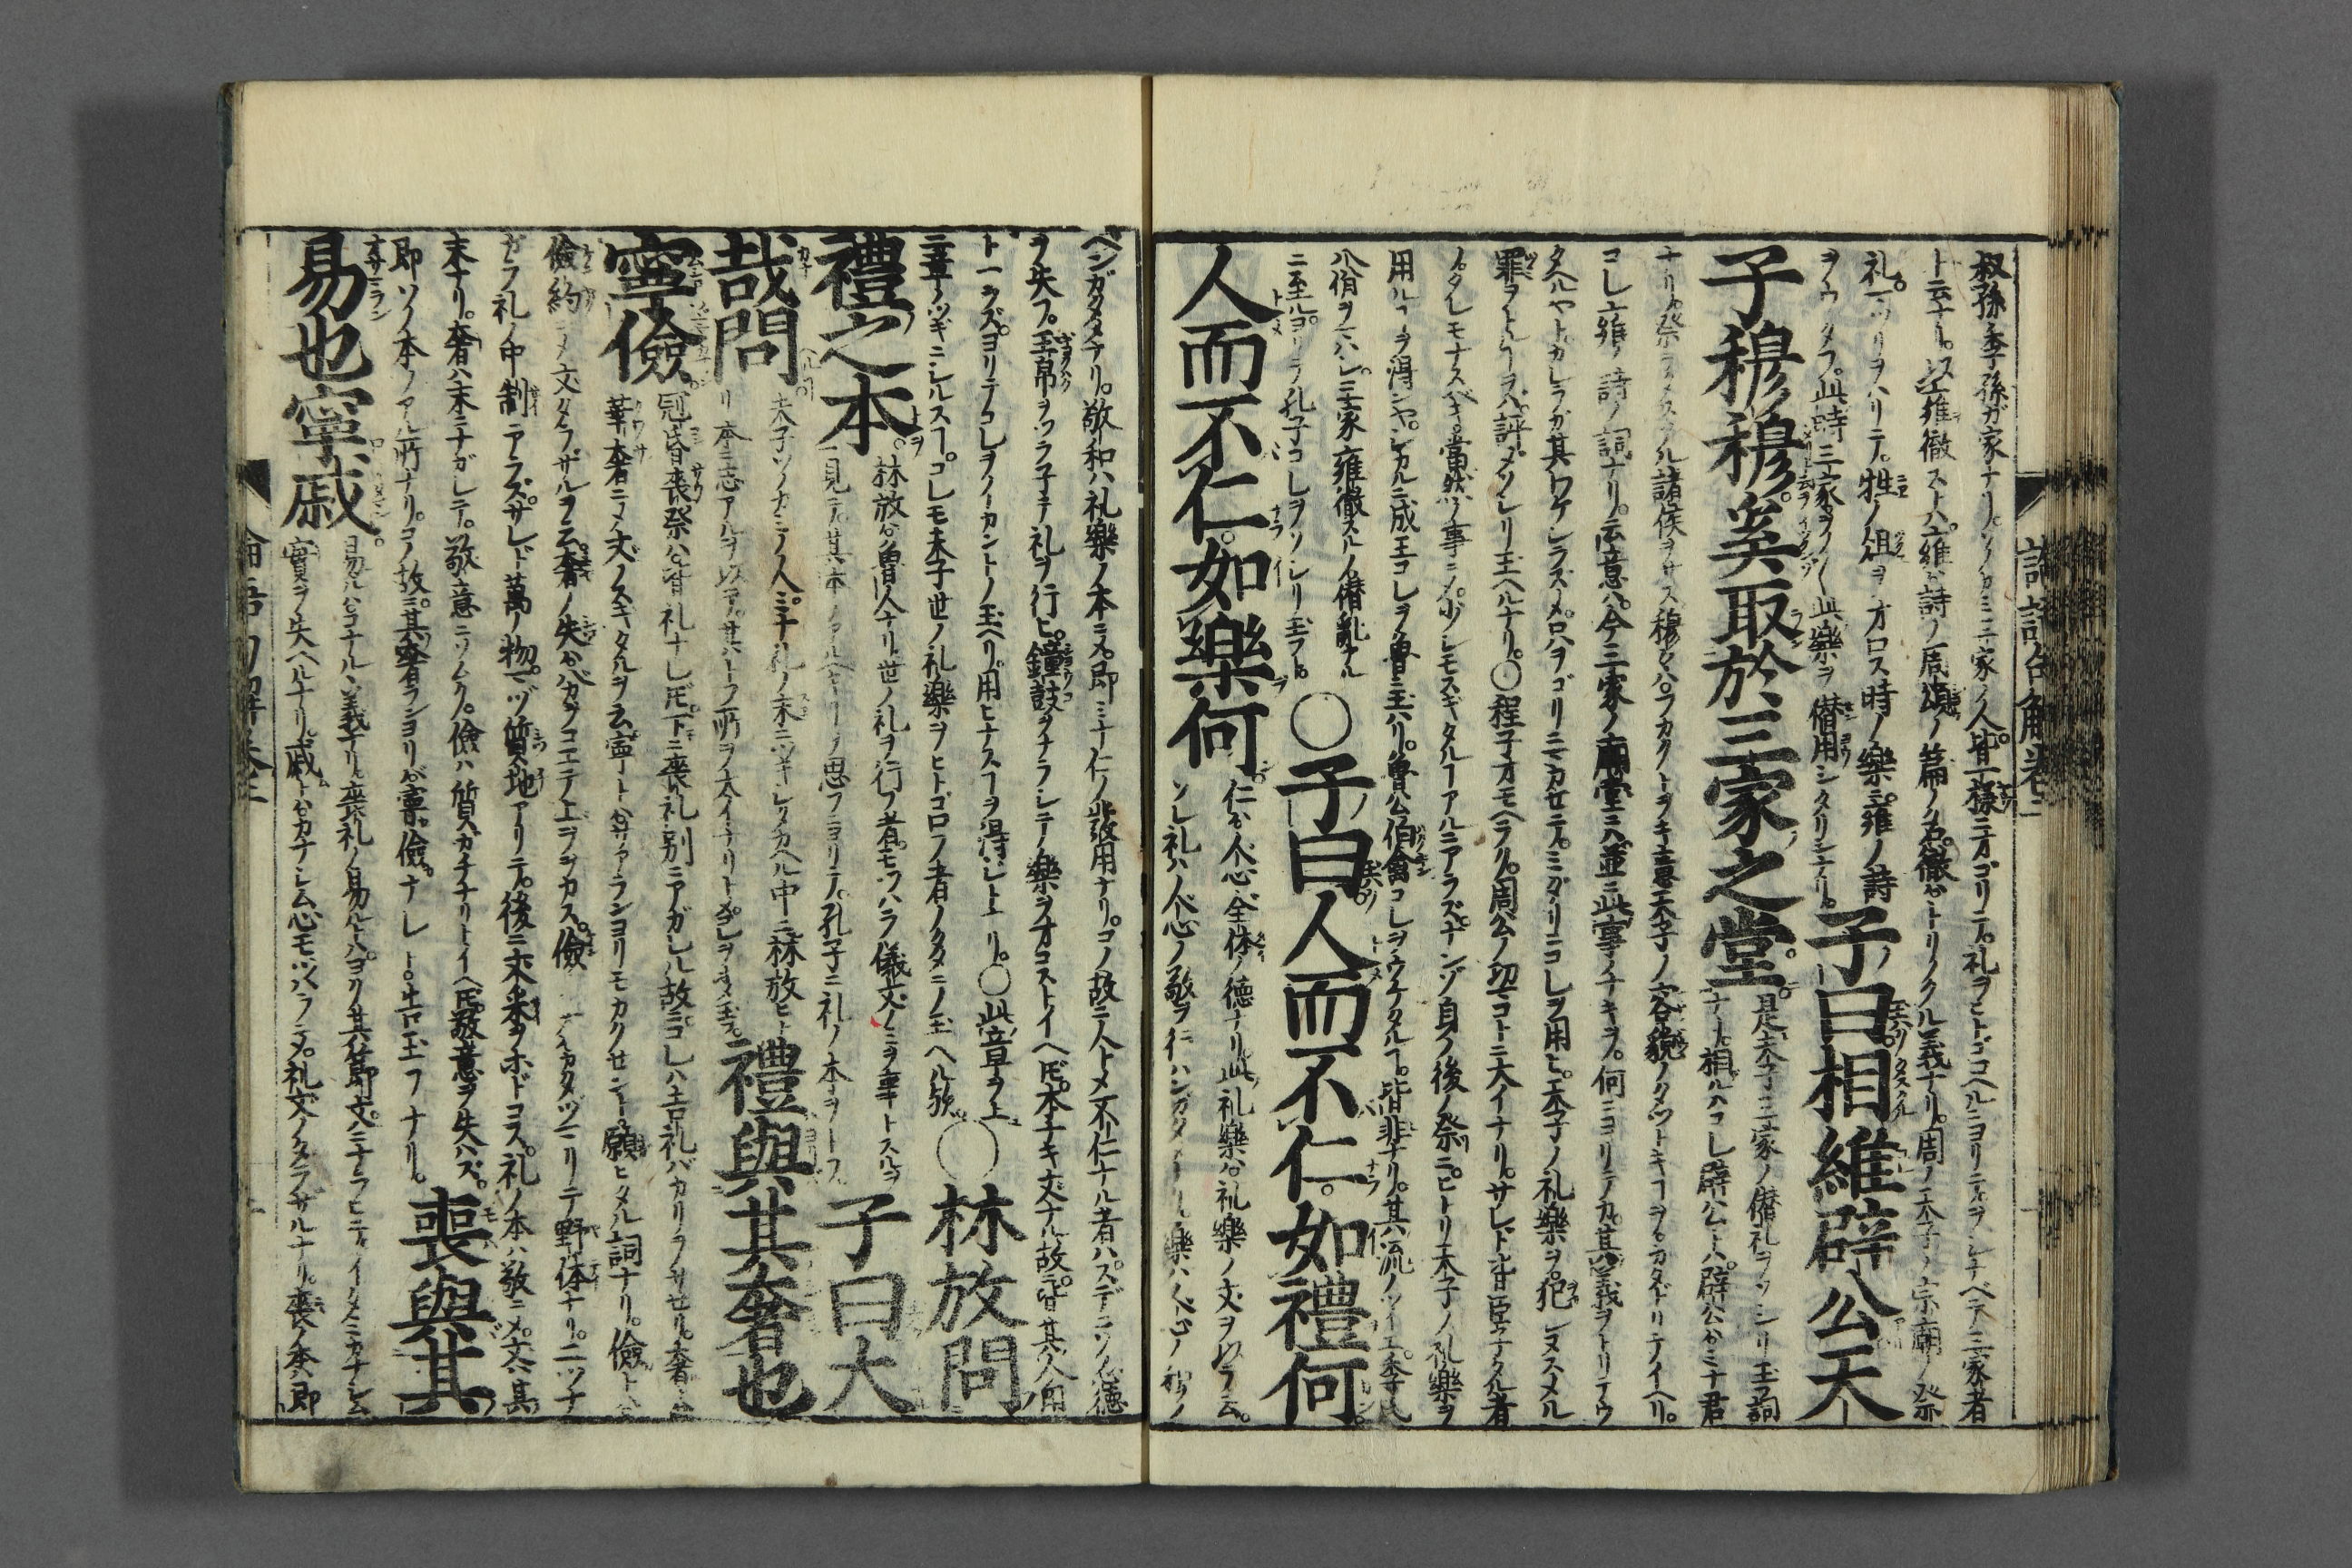 叔孫季孫ガ家ナリ。ソノカミ三家ノ人。皆一様ニオゴリテ。礼ヲヒトゴコヘルニヨリテ。ヲシナベテ三家者
ト云ナリ。以雍徹ストハ。雍ハ詩ノ周頌ノ篇ノ名。徹ハトリノクル義ナリ。周ノ天子ノ宗廟ノ祭
礼。マツリヲハリテ。牲ノ俎ヲオロス時ノ樂ニ。雍ノ詩
ヲウタフ。此時三家ヲノ〳〵此樂ヲ僣用シタリシナリ。
子曰相維辟公天
子穆穆。奚取於三家之堂。
是天子三家ノ僣礼ヲソシリ玉フ詞
ナリ。相ルハコレ辟公トハ。辟公ハミナ君
ナリ。祭ヲタスクル諸侯ヲサス。穆々ハフカクトヲキ意。天子ノ容貌ノタットキコヲカタドリテイヘリ。
コレ雍ノ詩ノ詞ナリ。云意ハ。今三家ノ廟堂ニハ。並ニ此事ナキヲ。何ニヨリテカ。其義ヲトリテウ
タヘルヤト。カレラガ其ワケシラズメ。ロハヲゴリニマカセテ。ミダリニコレヲ用ヒ。天子ノ礼樂ヲ。犯シヌスメル
罪ヲ評メソシリ玉ヘルナリ。○程子オモヘラク。周公ノ功マコトニ大イナリ。サレド皆臣子タル者
ノ。タレモナスベキ。當然ノ事ニメ。少シモスギタルコアルニアラズ。ナンゾ身ノ後ノ祭ニ。ヒトリ天子ノ礼樂ヲ
用ルコヲ得ンヤ。シカルニ成王コレヲ魯ニ玉ハリ。魯公伯禽コレヲウケタル丁。皆非ナリ。其流ノツイエ。季氏
八佾ヲマハシ。三家雍徹スルノ僣亂ナル
ニ至ルヨリテ孔子コレヲソシリ玉フト。
○子曰人而不仁。如禮何
人而不仁。如樂何
仁ハ人心全体ノ德ナリ。此礼樂ハ礼樂ノ文ヲ以テ云。
ソレ礼ハ人心ノ敬ヲ
ヘンガタメナリ。敬和ハ礼樂ノ本ニメ。即ミナ仁ノ發用ナリ。コノ故ニ人トメ不仁ナル者ハ。スデニソノ心德
ヲ失フ。玉帛ヲツラ子テ礼ヲ行ヒ。鐘鼓ヲナラシテ。樂ヲオコストイヘ𪜈。本ナキ文ナル故ニ。皆其人ノ用
トナラズ。ヨリテコレヲイカントノ玉ヘリ。用ヒナスコヲ得ジト上リ。○此章ヲ上
二章ノツギニシルスコ。コレモ末子世ノ礼樂ヲヒトゴロフ者ノタメニノ玉ヘル歟
○林放問
禮之本。
林放ハ魯ノ人ナリ。世ノ礼ヲ行フ者。モツハラ儀文ノミヲ事トスルヲ
見テ。其本ノアルベキコヲ思フニヨリテ。孔子ニ礼ノ本ヲトフ。
子曰大
哉問
夫子ソノカミノ人。ミナ礼ノ末ニツキシタガヘル中ニ。林放ヒト
リ本ニ志アルヲ以テ。其トフ所ヲ大イナリトメ。コレヲホメ玉フ。
禮與其奢也
寧儉。
冠昏喪祭ハ皆礼ナレ𪜈。下ニ喪礼別ニアガレル故ニ。コレハ吉礼バカリヲサセリ。奢ト云
華奢ニメ文ノスギタルヲ云。寧ハトハサアランヨリモカクセンコヲ願ヒタル詞ナリ。儉ト云
儉約ニメ文タラザルヲ云。奢ノ失ガバカブコエテ上ヲヲカス。儉
ガラ礼ノ中制ニアラズ。サレド萬ノ物。マヅ質地アリテ。後ニ采ヲホドコス。礼ノ本ハ敬ニメ。文ハ其
末ナリ。奢ハ末ニナガレテ。敬意ニソムク。儉ハ質カチナリトイヘ𪜈。敬意ヲ失ハズ。
即ソノ本ノアル所ナリ。コノ故ニ。其奢ランヨリガ寧。儉ナレト。告玉フナリ。
喪與其
易也寧戚。
易ルハコナルヽ義ナリ。喪礼ノ易ルトハ。ヨク其節文ニナラヒテ。イタミカナシム
實ヲ失ヘルナリ。戚トハカナシム心モツハラニメ。礼文ノタラザルナリ。喪ノ本ハ即
論語句解卷二